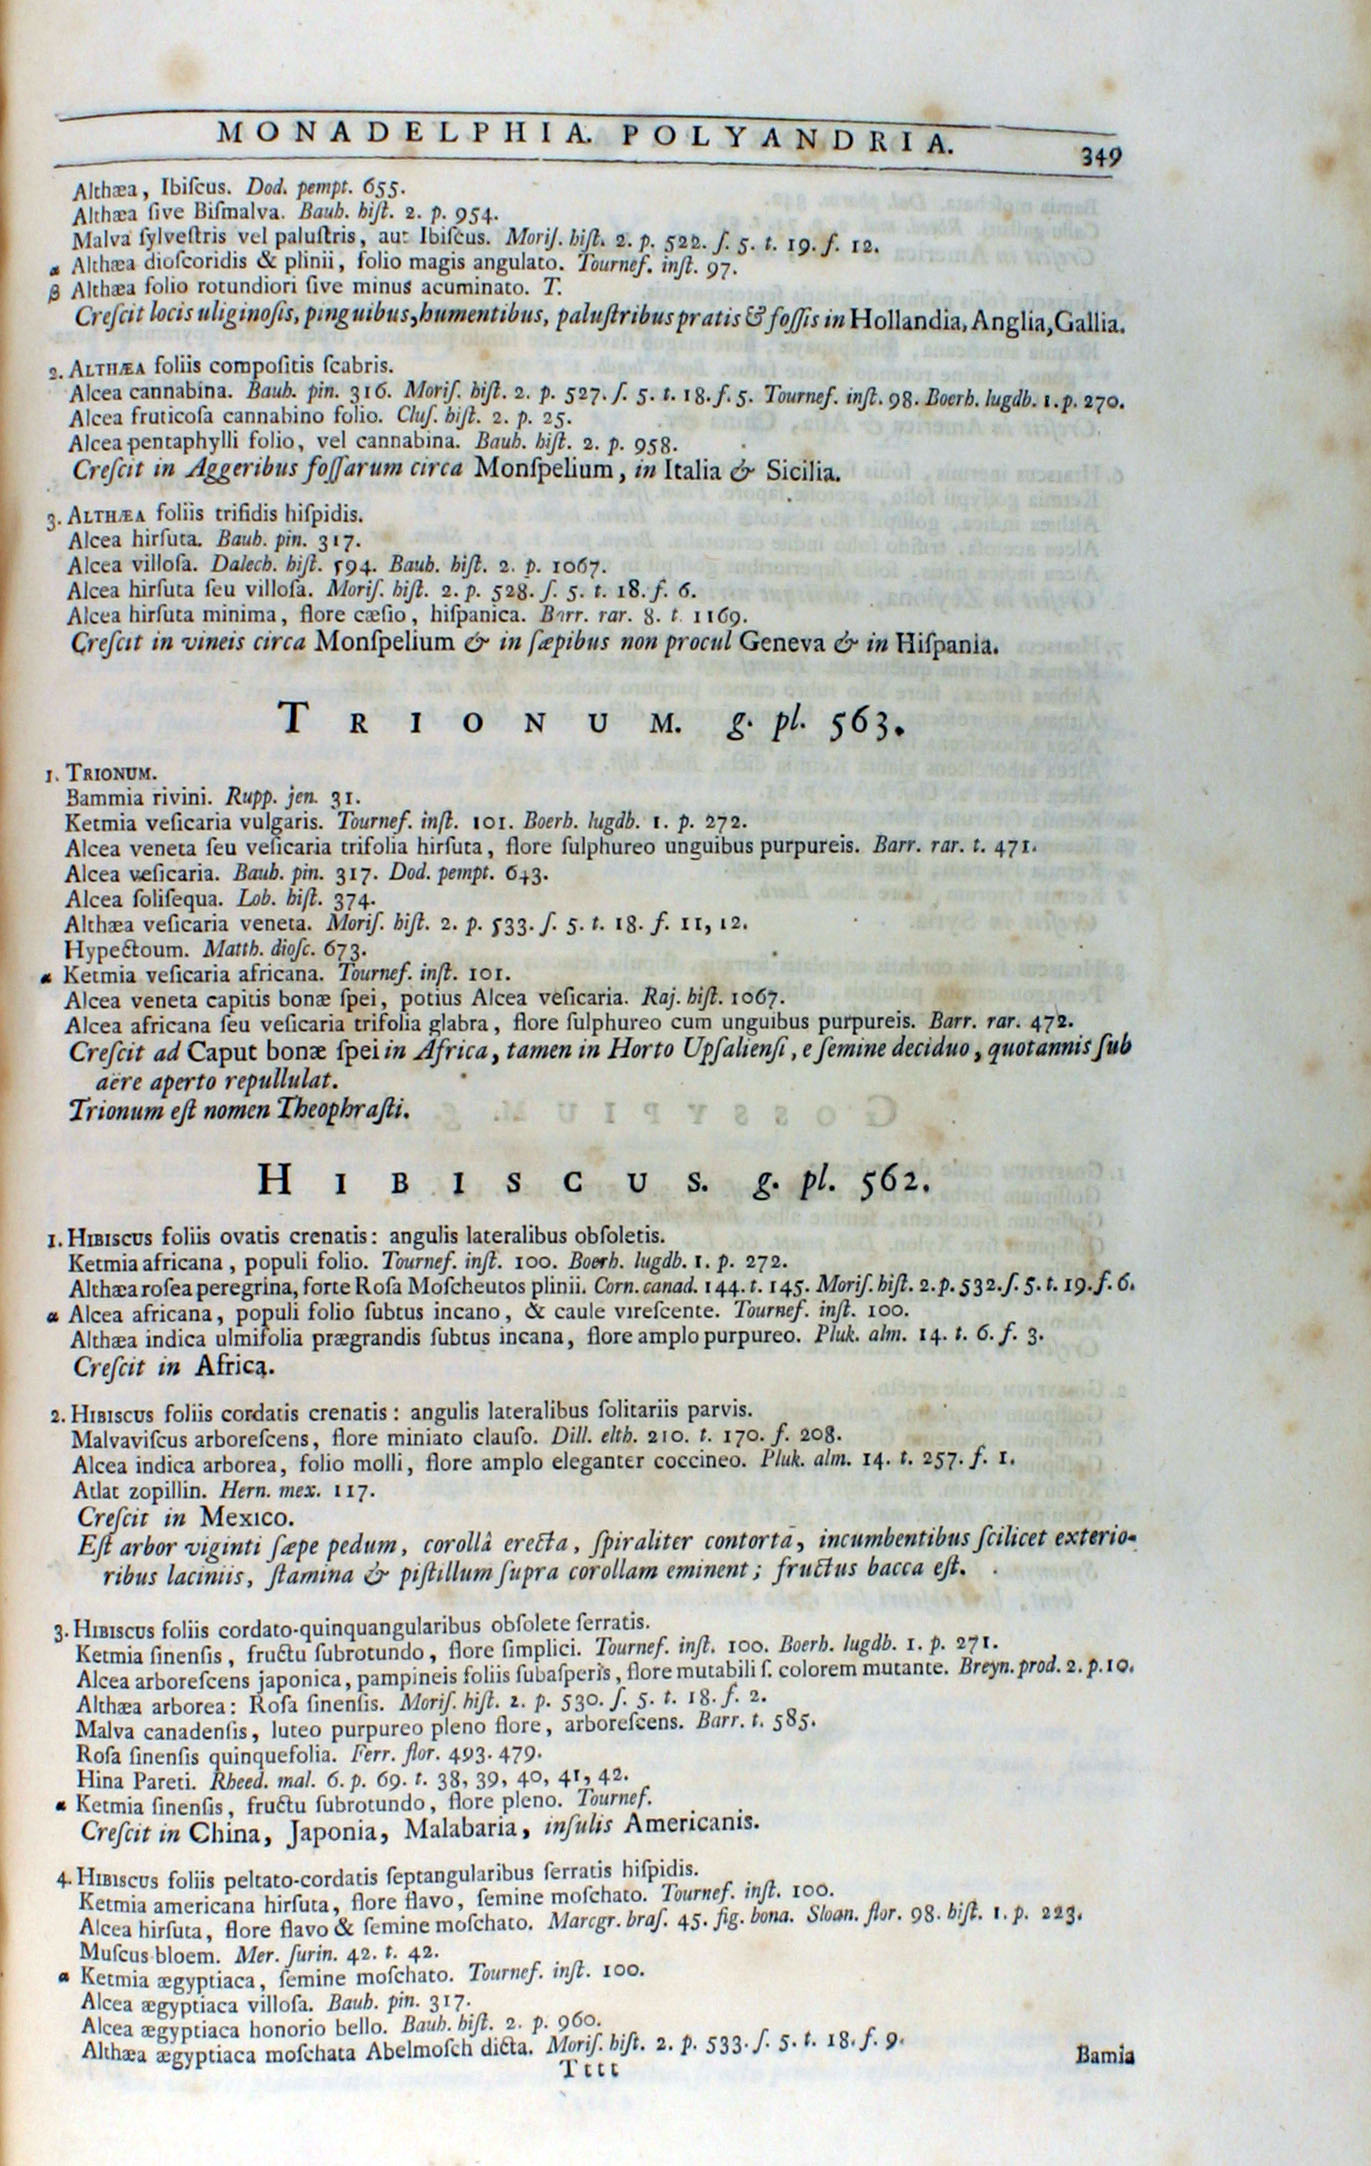 MONADELPHIA. POLYANDRIA. 349
Althæa, Ibiſcus. Dod. pempt. 655.
Althæa ſive Biſmalva. Bauh. hiſt. 2. p. 954.
Malva ſylveſtris vel paluſtris, aut Ibiſcus. Moriſ. hiſt. 2. p. 522. ſ. 5. t. 19. f. 12.
α Althæa dioſcoridis & plinii, folio magis angulato. Tournef. inſt. 97.
β Althæa folio rotundiori ſive minus acuminato. T.
Creſcit locis uliginoſis, pinguibus, humentibus, paluſtribus pratis & foſſis in Hollandia, Anglia, Gallia.
2. ALTHÆA foliis compoſitis ſcabris.
Alcea cannabina. Bauh. pin. 316. Moriſ. hiſt. 2. p. 527. ſ. 5. t. 18. f. 5. Tournef. inſt. 98. Boerh. lugdb. 1. p. 270.
Alcea fruticoſa cannabino folio. Cluſ. hiſt. 2. p. 25.
Alcea pentaphylli folio, vel cannabina. Bauh. hiſt. 2. p. 958.
Creſcit in Aggeribus foſſarum circa Monſpelium, in Italia & Sicilia.
3. ALTHÆA foliis trifidis hiſpidis.
Alcea hirſuta. Bauh. pin. 317.
Alcea villoſa. Dalech. hiſt. 594. Bauh. hiſt. 2. p. 1067.
Alcea hirſuta ſeu villoſa. Moriſ. hiſt. 2. p. 528. ſ. 5. t. 18. f. 6.
Alcea hirſuta minima, flore cæſio, hiſpanica. Barr. rar. 8. t. 1169.
Creſcit in vineis circa Monſpelium & in ſæpibus non procul Geneva & in Hiſpania.
TRIONUM. g. pl. 563.
1. TRIONUM.
Bammia rivini. Rupp. jen. 31.
Ketmia veſicaria vulgaris. Tournef. inſt. 101. Boerh. lugdb. 1. p. 272.
Alcea veneta ſeu veſicaria trifolia hirſuta, flore ſulphureo unguibus purpureis. Barr. rar. t. 471.
Alcea veſicaria. Bauh. pin. 317. Dod. pempt. 643.
Alcea ſoliſequa. Lob. hiſt. 374.
Althæa veſicaria veneta. Moriſ. hiſt. 2. p. 533. ſ. 5. t. 18. f. 11, 12.
Hypectoum. Matth. dioſc. 673.
α Ketmia veſicaria africana. Tournef. inſt. 101.
Alcea veneta capitis bonæ ſpei, potius Alcea veſicaria. Raj. hiſt. 1067.
Alcea africana ſeu veſicaria trifolia glabra, flore ſulphureo cum unguibus purpureis. Barr. rar. 472.
Creſcit ad Caput bonæ ſpei in Africa, tamen in Horto Upſalienſi, e ſemine deciduo, quotannis ſub
aëre aperto repullulat.
Trionum eſt nomen Theophraſti.
HIBISCUS. g. pl. 562.
1. HIBISCUS foliis ovatis crenatis: angulis lateralibus obſoletis.
Ketmia africana, populi folio. Tournef. inſt. 100. Boerh. lugdb. 1. p. 272.
Althæa roſea peregrina, forte Roſa Moſcheutos plinii. Corn. canad. 144. t. 145. Moriſ. hiſt. 2. p. 532. ſ. 5. t. 19. f. 6.
α Alcea africana, populi folio ſubtus incano, & caule vireſcente. Tournef. inſt. 100.
Althæa indica ulmifolia prægrandis ſubtus incana, flore amplo purpureo. Pluk. alm. 14. t. 6. f. 3.
Creſcit in Africa.
2. HIBISCUS foliis cordatis crenatis: angulis lateralibus ſolitariis parvis.
Malvaviſcus arboreſcens, flore miniato clauſo. Dill. elth. 210. t. 170. f. 208.
Alcea indica arborea, folio molli, flore amplo eleganter coccineo. Pluk. alm. 14. t. 257. f. 1.
Atlat zopillin. Hern. mex. 117.
Creſcit in Mexico.
Eſt arbor viginti ſæpe pedum, corollâ erecta, ſpiraliter contortâ, incumbentibus ſcilicet exterio-
ribus laciniis, ſtamina & piſtillum ſupra corollam eminent; fructus bacca eſt.
3. HIBISCUS foliis cordato-quinquangularibus obſolete ſerratis.
Ketmia ſinenſis, fructu ſubrotundo, flore ſimplici. Tournef. inſt. 100. Boerh. lugdb. 1. p. 271.
Alcea arboreſcens japonica, pampineis foliis ſubaſperis, flore mutabili ſ. colorem mutante. Breyn. prod. 2. p. 10.
Althæa arborea: Roſa ſinenſis. Moriſ. hiſt. 2. p. 530. ſ. 5. t. 18. f. 2.
Malva canadenſis, luteo purpureo pleno flore, arboreſcens. Barr. t. 585.
Roſa ſinenſis quinquefolia. Ferr. flor. 493. 479.
Hina Pareti. Rheed. mal. 6. p. 69. t. 38, 39, 40, 41, 42.
α Ketmia ſinenſis, fructu ſubrotundo, flore pleno. Tournef.
Creſcit in China, Japonia, Malabaria, inſulis Americanis.
4. HIBISCUS foliis peltato-cordatis ſeptangularibus ſerratis hiſpidis.
Ketmia americana hirſuta, flore flavo, ſemine moſchato. Tournef. inſt. 100.
Alcea hirſuta, flore flavo & ſemine moſchato. Marcgr. braſ. 45. fig. bona. Sloan. flor. 98. hiſt. 1. p. 223.
Muſcus bloem. Mer. ſurin. 42. t. 42.
α Ketmia ægyptiaca, ſemine moſchato. Tournef. inſt. 100.
Alcea ægyptiaca villoſa. Bauh. pin. 317.
Alcea ægyptiaca honorio bello. Bauh. hiſt. 2. p. 960.
Althæa ægyptiaca moſchata Abelmoſch dicta. Moriſ. hiſt. 2. p. 533. ſ. 5. t. 18. f. 9.
Tttt Bamia